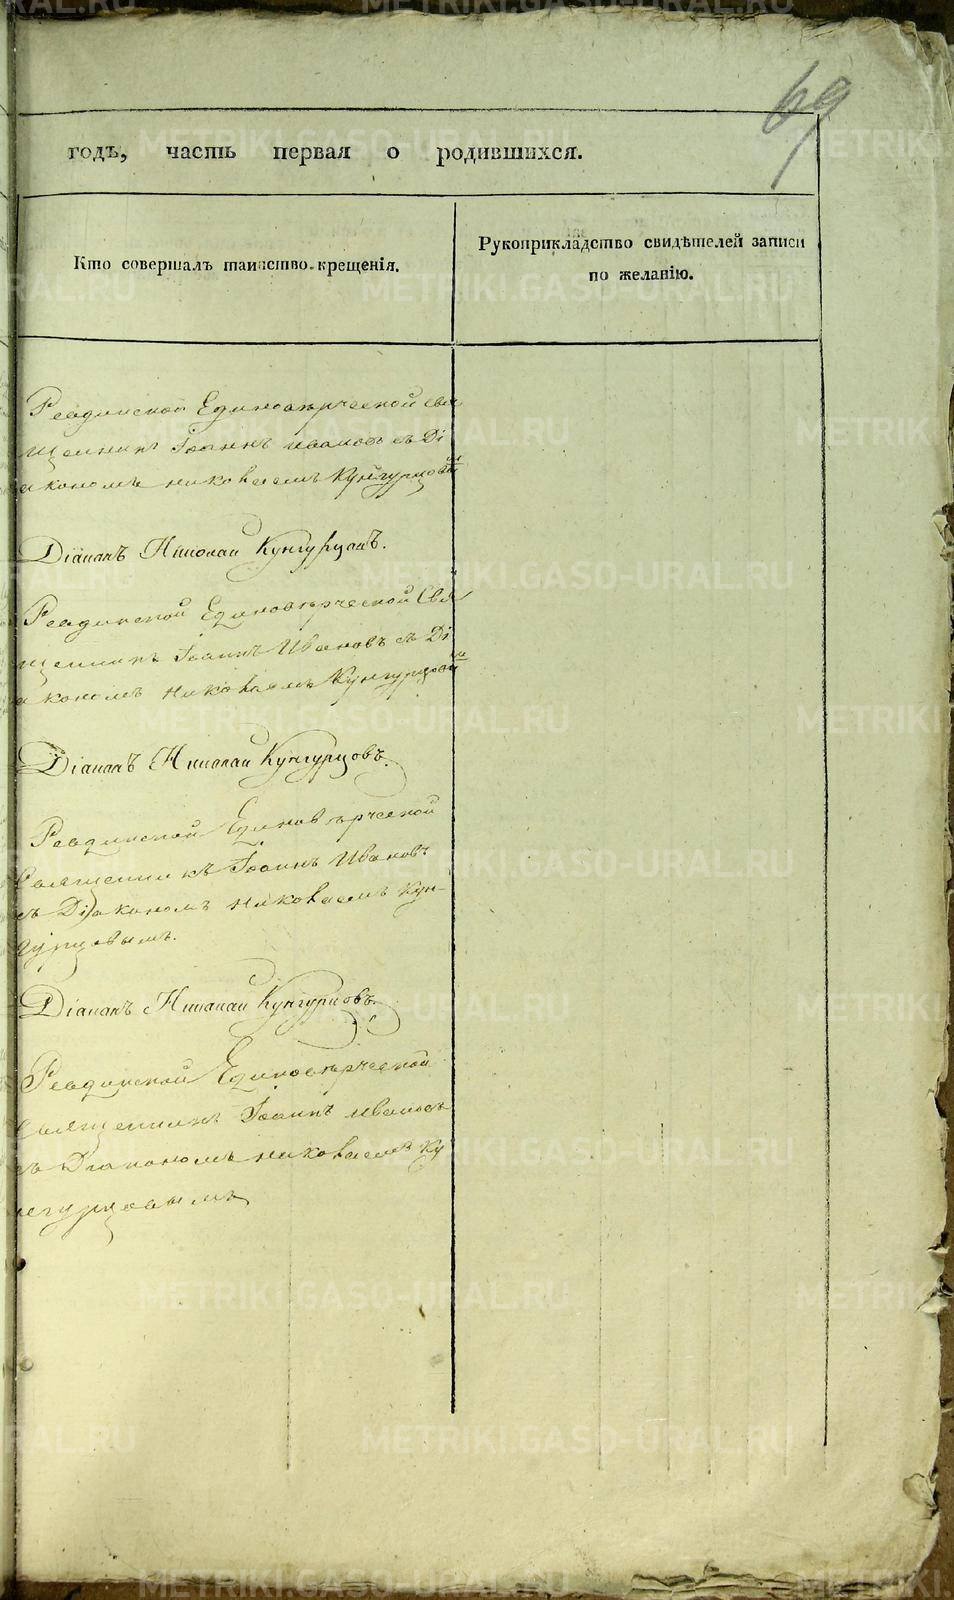 69
годъ, часть первая о родившихся.
Кто совершалъ таинство крещенія.
Рукоприкладство свидѣтелей записи
по желанію.
Ревдинской Единовѣрческой свя
щенникъ Іоаннъ Ивановъ съ Ді
акономъ Николаемъ Кунгурцовы
Діаконъ Николай Кунгурцовъ.
Ревдинской Единовѣрческой Свя
щенникъ Іоаннъ Ивановъ съ Ді
акономъ Николаемъ Кунгурцовы
Діаконъ Николай Кунгурцовъ.
Ревдинской Единовѣрческой
Священникъ Іоаннъ Ивановъ
съ Діакономъ Николаемъ Кун-
гурцовымъ.
Діаконъ Николай Кунгурцовъ.
Ревдинской Единовѣрческой
Священникъ Іоаннъ Ивановъ
съ Діакономъ Николаемъ Ку
нгурцовымъ
METRIKI.GASO-URAL.RU